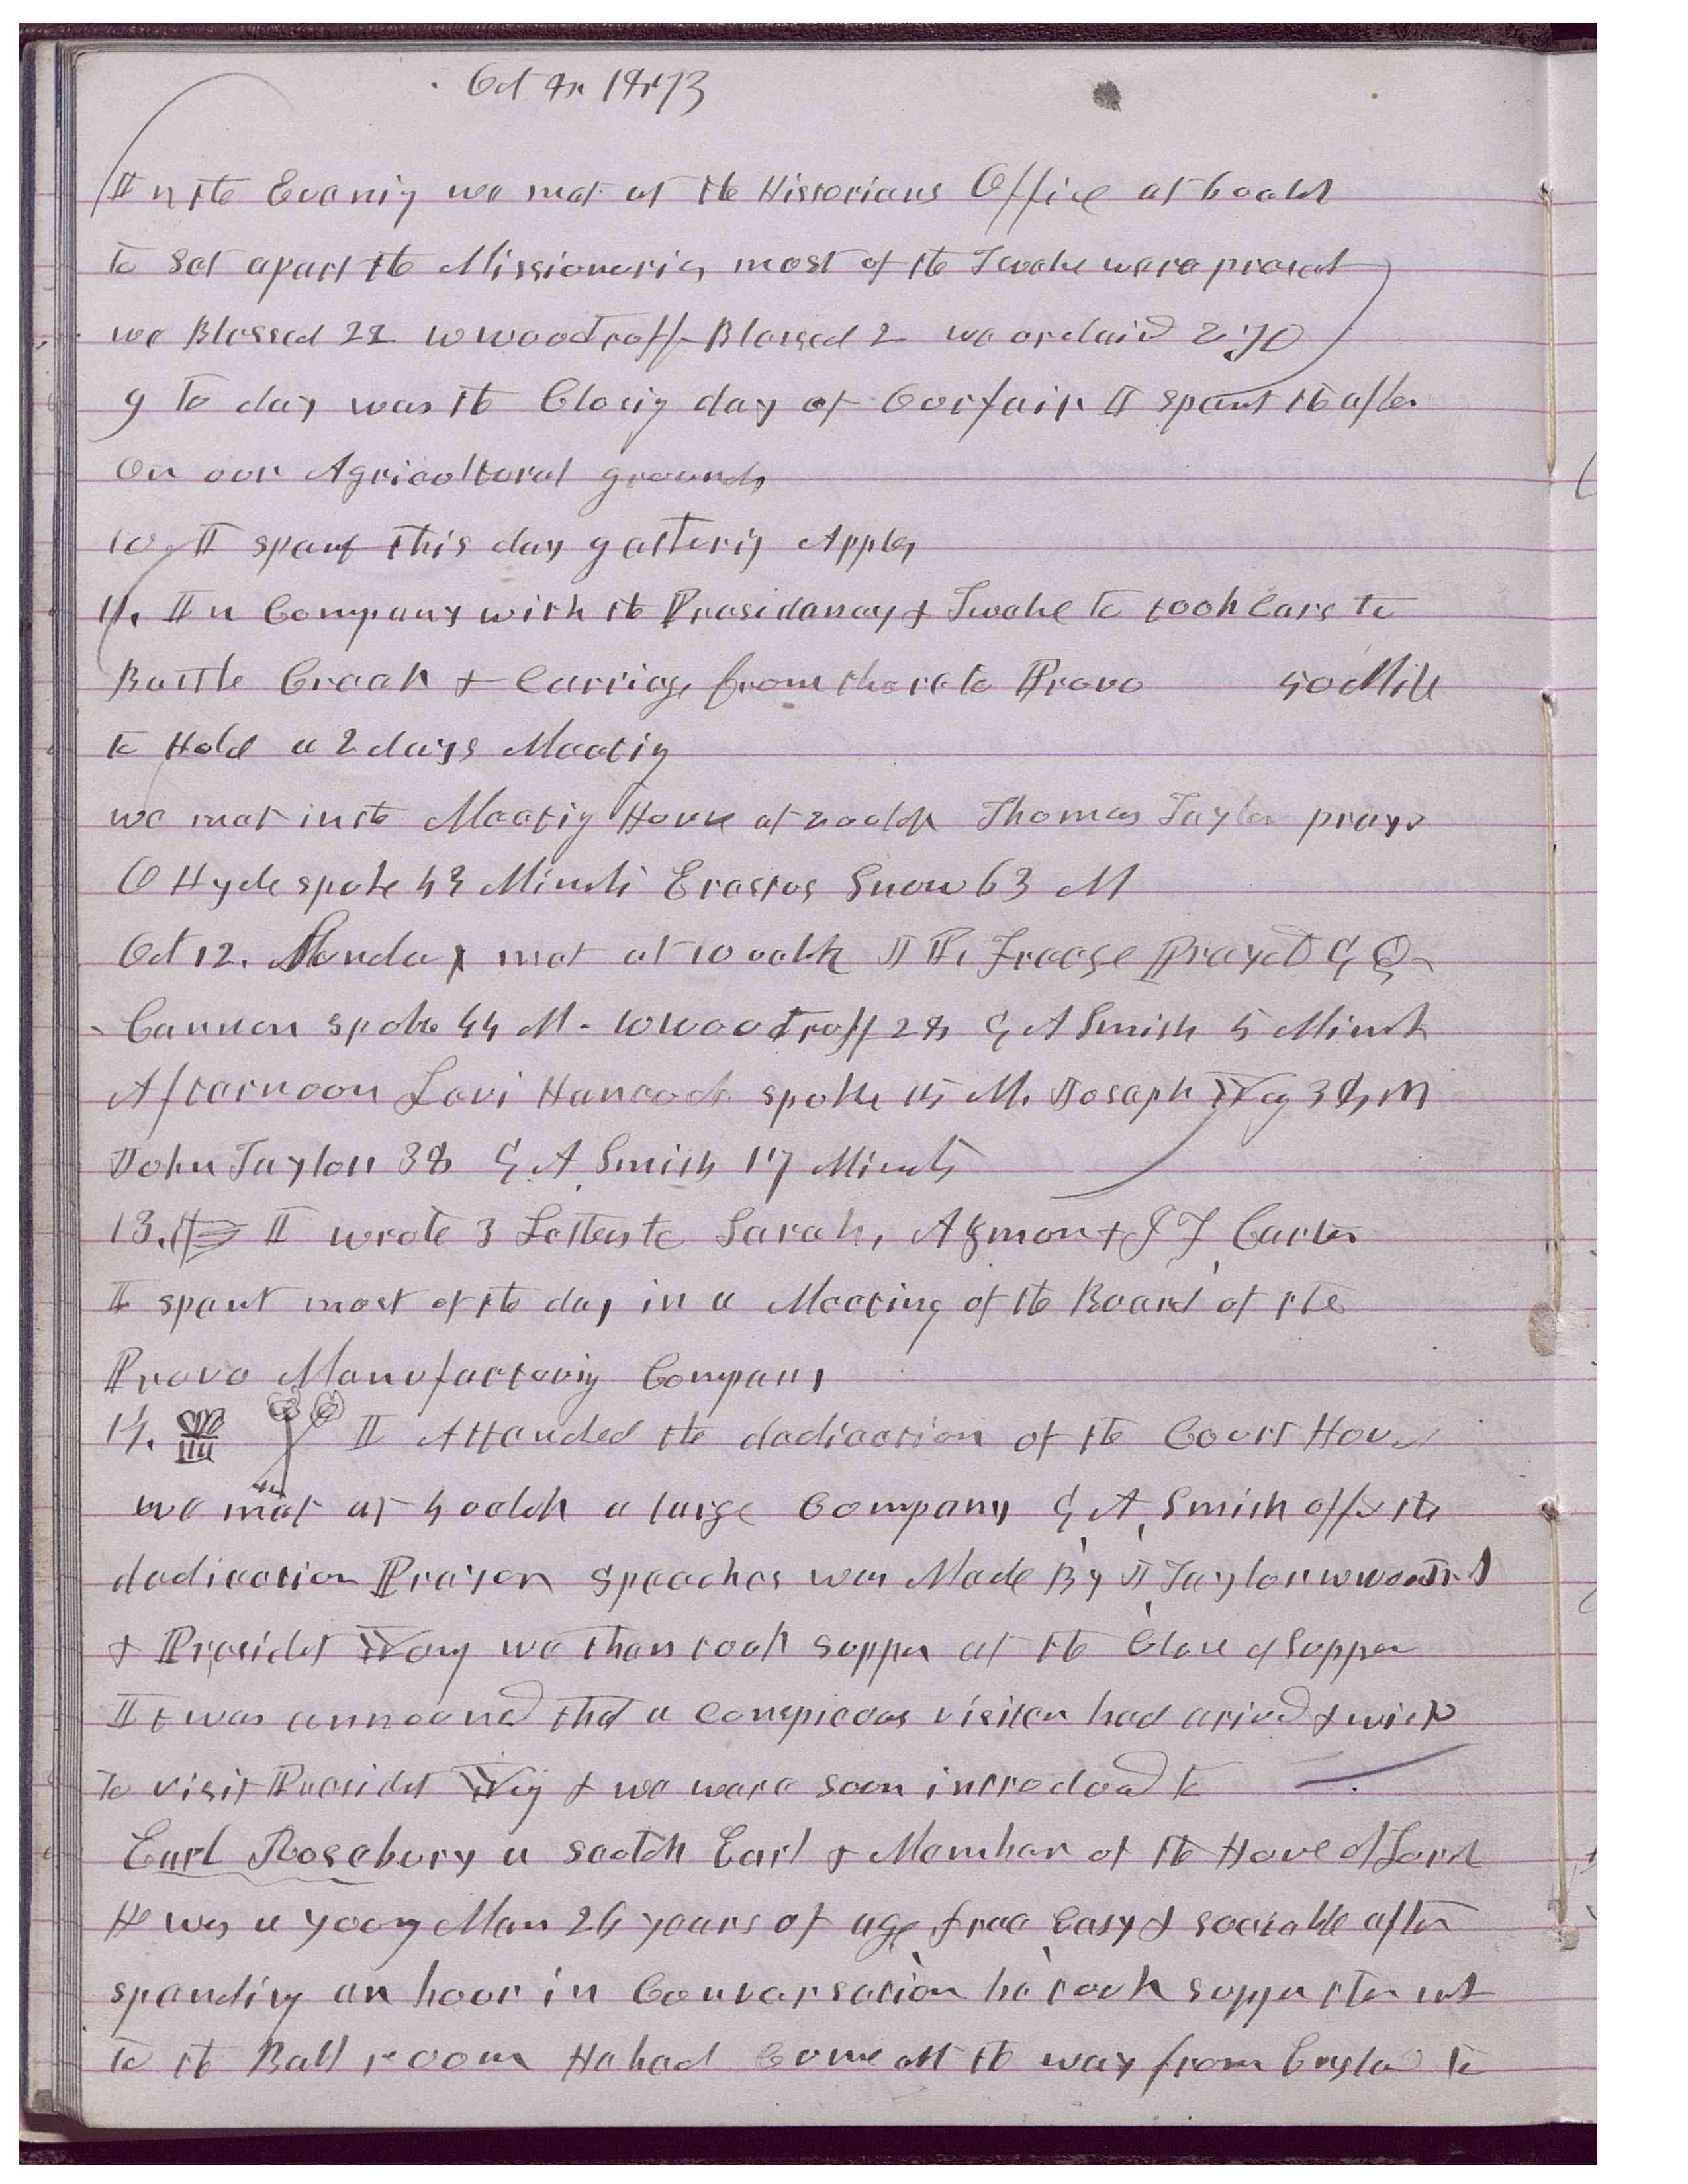 Oct 8th 1873
In the Evenig we met at the Historians Office at 6 oclok
to Set apart the Missionaries, most of the Twelve were present
we Blessed 22 W Woodruff Blessed 2 we ordaind 2 70
9 To day was the Closig day of Our fair I spent the after
On our Agricultural grounds
10 I spent this day gatherig Apples
11. In Company with the Presidency & Twelve to took Cars to
Battle Creek & Carriage from there to Provo 50 Mile
to Hold a 2 days Meetig
we met in the Meetig House at 2 oclok Thomas Taylor prayd
O Hyde spoke 43 Minuts Erastus Snow 63 M
Oct 12. Sunday met at 10 oclok J P. Freeze Prayed G Q
Cannon spoke 44 M. W Woodruff 28 G A Smith 5 Minuts
Afternoon Levi Hancock spoke 15 M. Joseph Yug 38, M
John Taylor 38 G. A. Smith 17 Minuts
13. I wrote 3 Letters to Sarah, Azmon & S F Carter
I spent most of the day in a Meeting of the Board of the
Provo Manufacturig Company
14. I Attended the dedication of the Court House
we met at 4 oclok a large Company G. A. Smith offrd the
dedication Prayer Speeches was Made By J Taylor W Woodruff
& Presidet Yong we then took supper at the Close of Supper
It was announcd that a Conspicuous visiter had arivd & wishd
To visit Presidet Yug & we were soon introducd to
Earl Rosebury a Scotch Earl & Member of the House of Lords
He was a young Man 26 years of age, free Easy & sociable after
spendig an hour in Conversation he took supper then went
to the Ball room He had Come all the way from Englad to